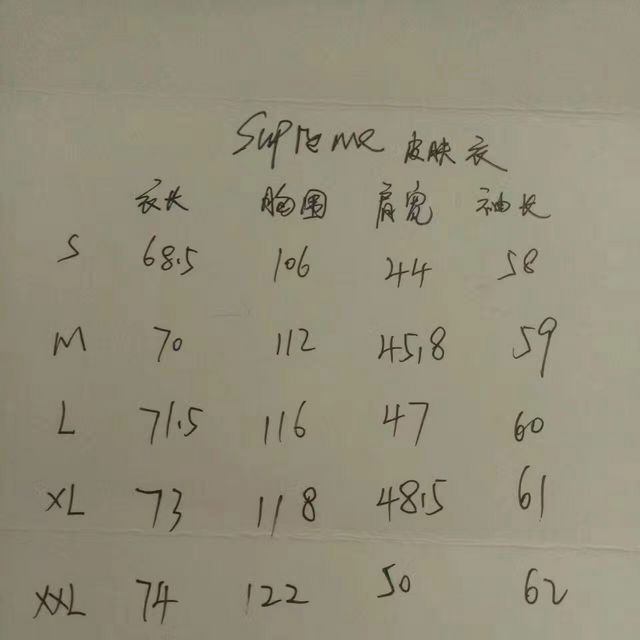 Supreme 皮肤衣
衣长 胸围 肩宽 袖长
S 68.5 106 44 58
M 70 112 45.8 59
L 71.5 116 47 60
XL 73 118 48.5 61
XXL 74 122 50 62